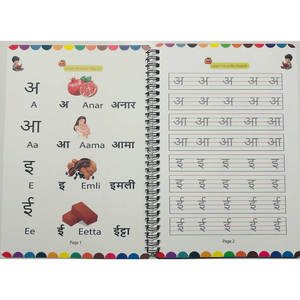 अ
A अ Anar अनार
आ
Aa आ Aama आमा
इ
E इ Emli इमली
ई
Ee ई Eetta ईट्टा
Page 1
अ अ अ अ अ
अ अ अ अ अ
आ आ आ आ आ
आ आ आ आ आ
इ इ इ इ इ
इ इ इ इ इ
ई ई ई ई ई
ई ई ई ई ई
Page 2